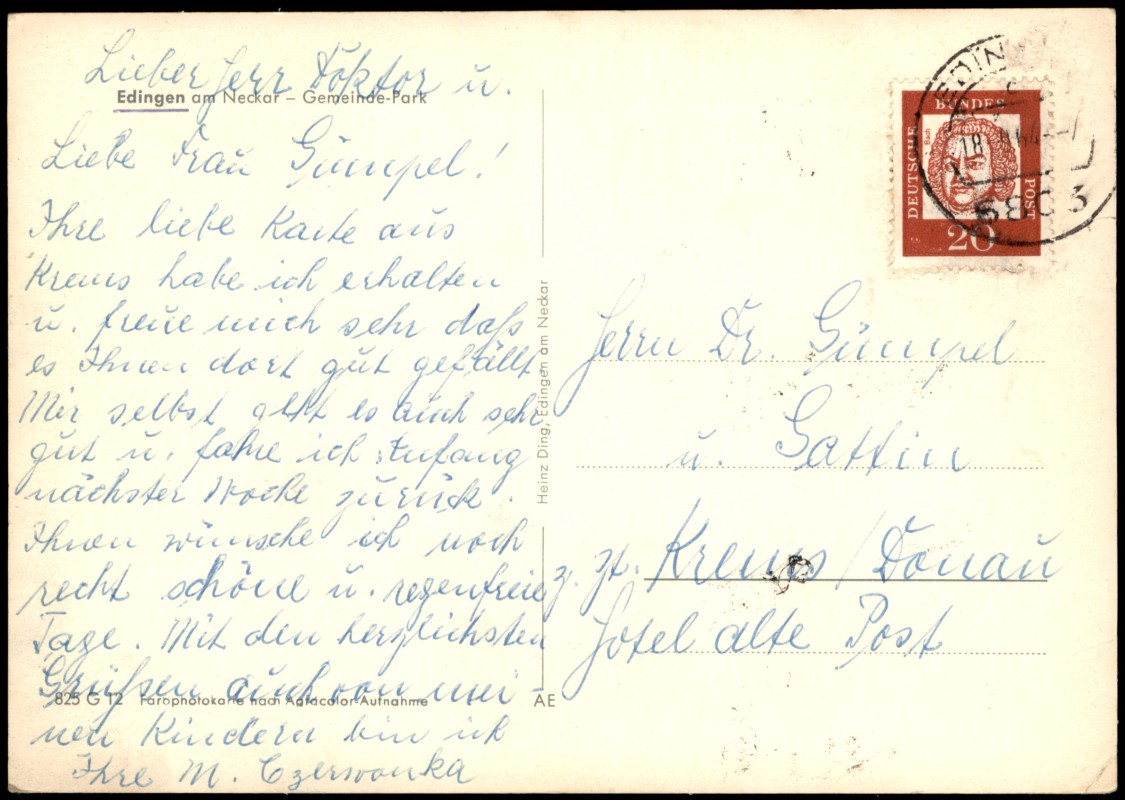 Lieber Herr Doktor u.
Edingen am Neckar – Gemeinde-Park
Liebe Frau Gümpel!
Ihre liebe Karte aus
Krems habe ich erhalten
u. freue mich sehr daß
es Ihnen dort gut gefällt
Mir selbst geht es auch sehr
gut u. fahre ich Anfang
nächster Woche zurück.
Ihnen wünsche ich noch
recht schöne u. regenfreie
Tage. Mit den herzlichsten
Grüßen auch von mei-
825 G 12 Farbphotokarte nach Agfacolor-Aufnahme
nen Kindern bin ich
Ihre M. Czerwonka
AE
Heinz Ding, Edingen am Neckar
DEUTSCHE
BUNDES
POST
Bach
20
EDIN
18
6803
Herrn Dr. Gümpel
u. Gattin
z. Zt. Krems/Donau
Hotel alte Post